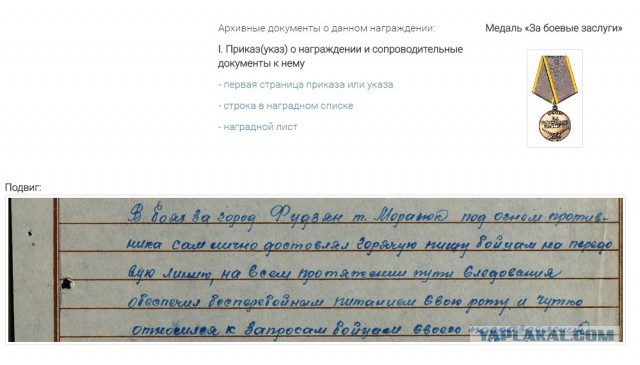 Архивные документы о данном награждении:
Медаль «За боевые заслуги»
I. Приказ(указ) о награждении и сопроводительные
документы к нему
- первая страница приказа или указа
- строка в наградном списке
- наградной лист
Подвиг:
В боях за город Фудзян т. Моранюк под огнем против-
ника сам лично доставлял горячую пищу бойцам на передо
вую линию, на всем протяжении пути следования
обеспечил бесперебойным питанием свою роту и чутко
относился к запросам бойцам своего
YAPLAKAL.COM